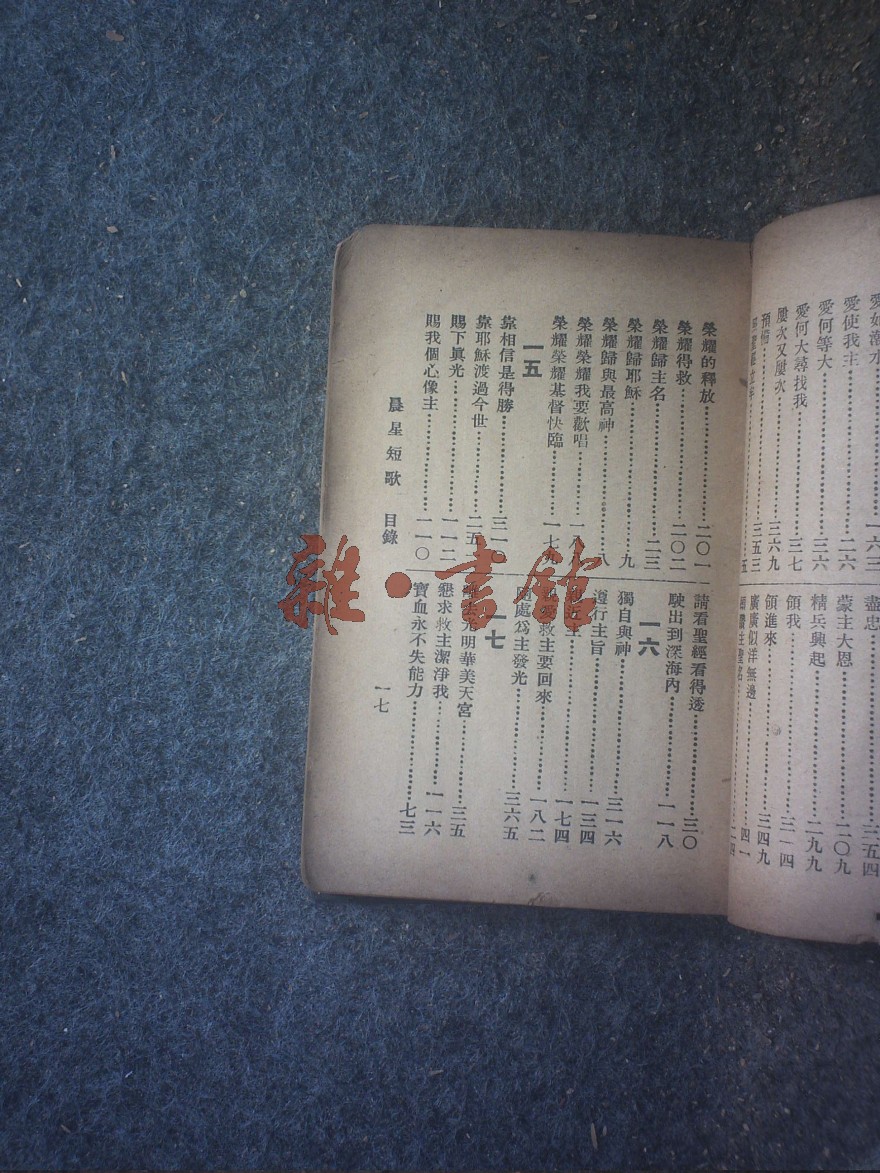 愛使我主……二六
愛何等大……三六
愛何大尋找我……三七
屢次又屢次……三六九
盡忠……三五四
蒙主大恩……二〇九
精兵興起……二九九
領我……三一四
領進來……三四九
廣廣似洋無邊……四一
榮耀的釋放……二〇一
榮耀得救……二〇二
榮耀歸主名……二三
榮耀歸耶穌……九
榮耀歸與最高神……八
榮耀榮耀我要歡唱
榮耀榮耀基督快臨……一七九
一五
靠相信是得勝
靠耶穌渡過今世……二五
賜下眞光……一一二
賜我個心像主……一一〇
請看聖經看得透……三〇
駛出到深海內……一一八
一六
獨自與神……三一六
遵行主旨……一三四
一七四
救主要回來……一八二
隨處爲主發光……三六五
一七
光明華美天宮……三五
懇求救主潔淨我……一一六
寶血永不失能力……七三
晨星短歌 目錄
一七
雜·書館